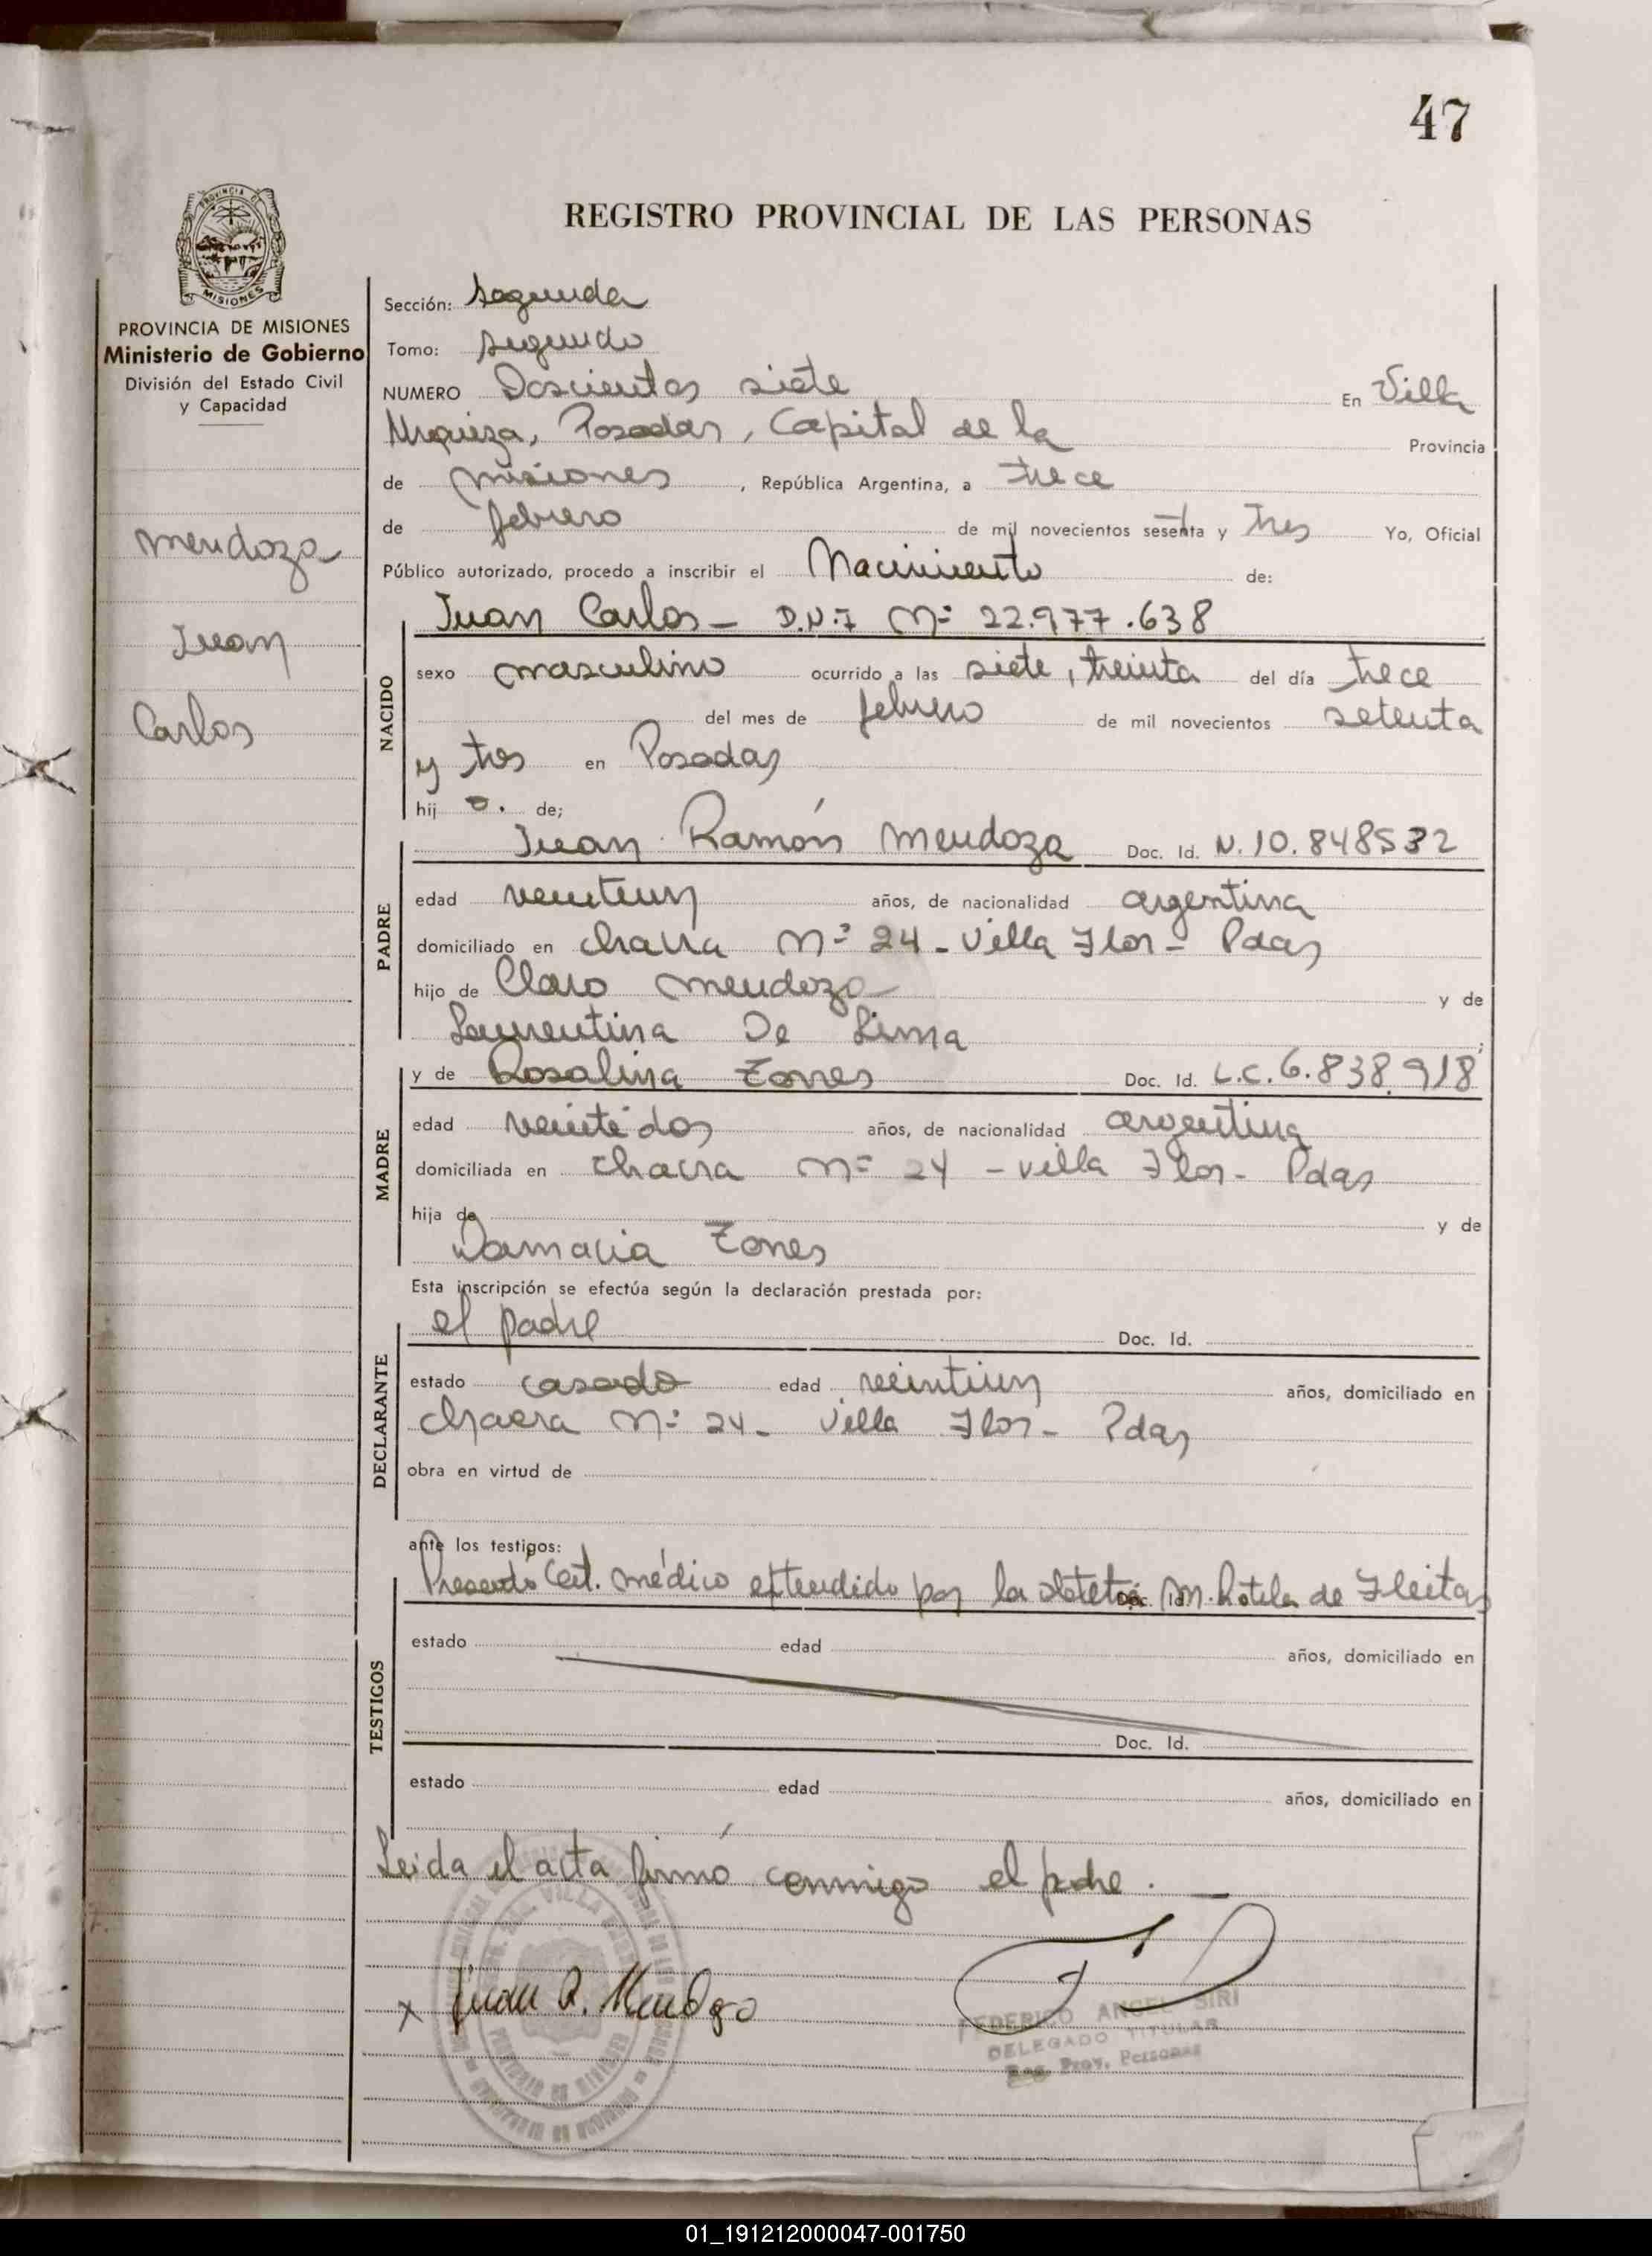 47
REGISTRO PROVINCIAL DE LAS PERSONAS
MISIONES
PROVINCIA DE MISIONES
Ministerio de Gobierno
División del Estado Civil
y Capacidad
Mendoza
Juan
Carlos
Sección: segunda
Tomo: segundo
NUMERO Doscientos siete En Villa
Urquiza, Posadas, Capital de la Provincia
de misiones, República Argentina, a trece
de febrero de mil novecientos sesenta y tres Yo, Oficial
Público autorizado, procedo a inscribir el Nacimiento de:
NACIDO
Juan Carlos - D.N.I Nº 22.977.638
sexo masculino ocurrido a las siete, treinta del día trece
del mes de febrero de mil novecientos setenta
y tres en Posadas
hij o. de;
PADRE
Juan Ramón Mendoza Doc. Id. N. 10.848532
edad veintiun años, de nacionalidad argentina
domiciliado en chacra Nº 24 - Villa Flor - Pdas
hijo de Claro Mendoza y de
Laurentina De Lima
MADRE
y de Rosalina Torres Doc. Id. L.C. 6.838.918
edad veintidos años, de nacionalidad argentina
domiciliada en chacra Nº 24 - Villa Flor - Pdas
hija de y de
Damacia Torres
Esta inscripción se efectúa según la declaración prestada por:
DECLARANTE
el padre Doc. Id.
estado casado edad veintiun años, domiciliado en
chacra Nº 24 - Villa Flor - Pdas
obra en virtud de
ante los testigos:
TESTIGOS
Presentó Cert. médico extendido por la Doc. Id. M. Rotela de Fleitas
estado edad años, domiciliado en
Doc. Id.
estado edad años, domiciliado en
Leida el acta firmó conmigo el padre. -
x Juan R. Mendoza
FEDERICO ANGEL SIRI
DELEGADO TITULAR
Reg. Prov. Personas
01_191212000047-001750